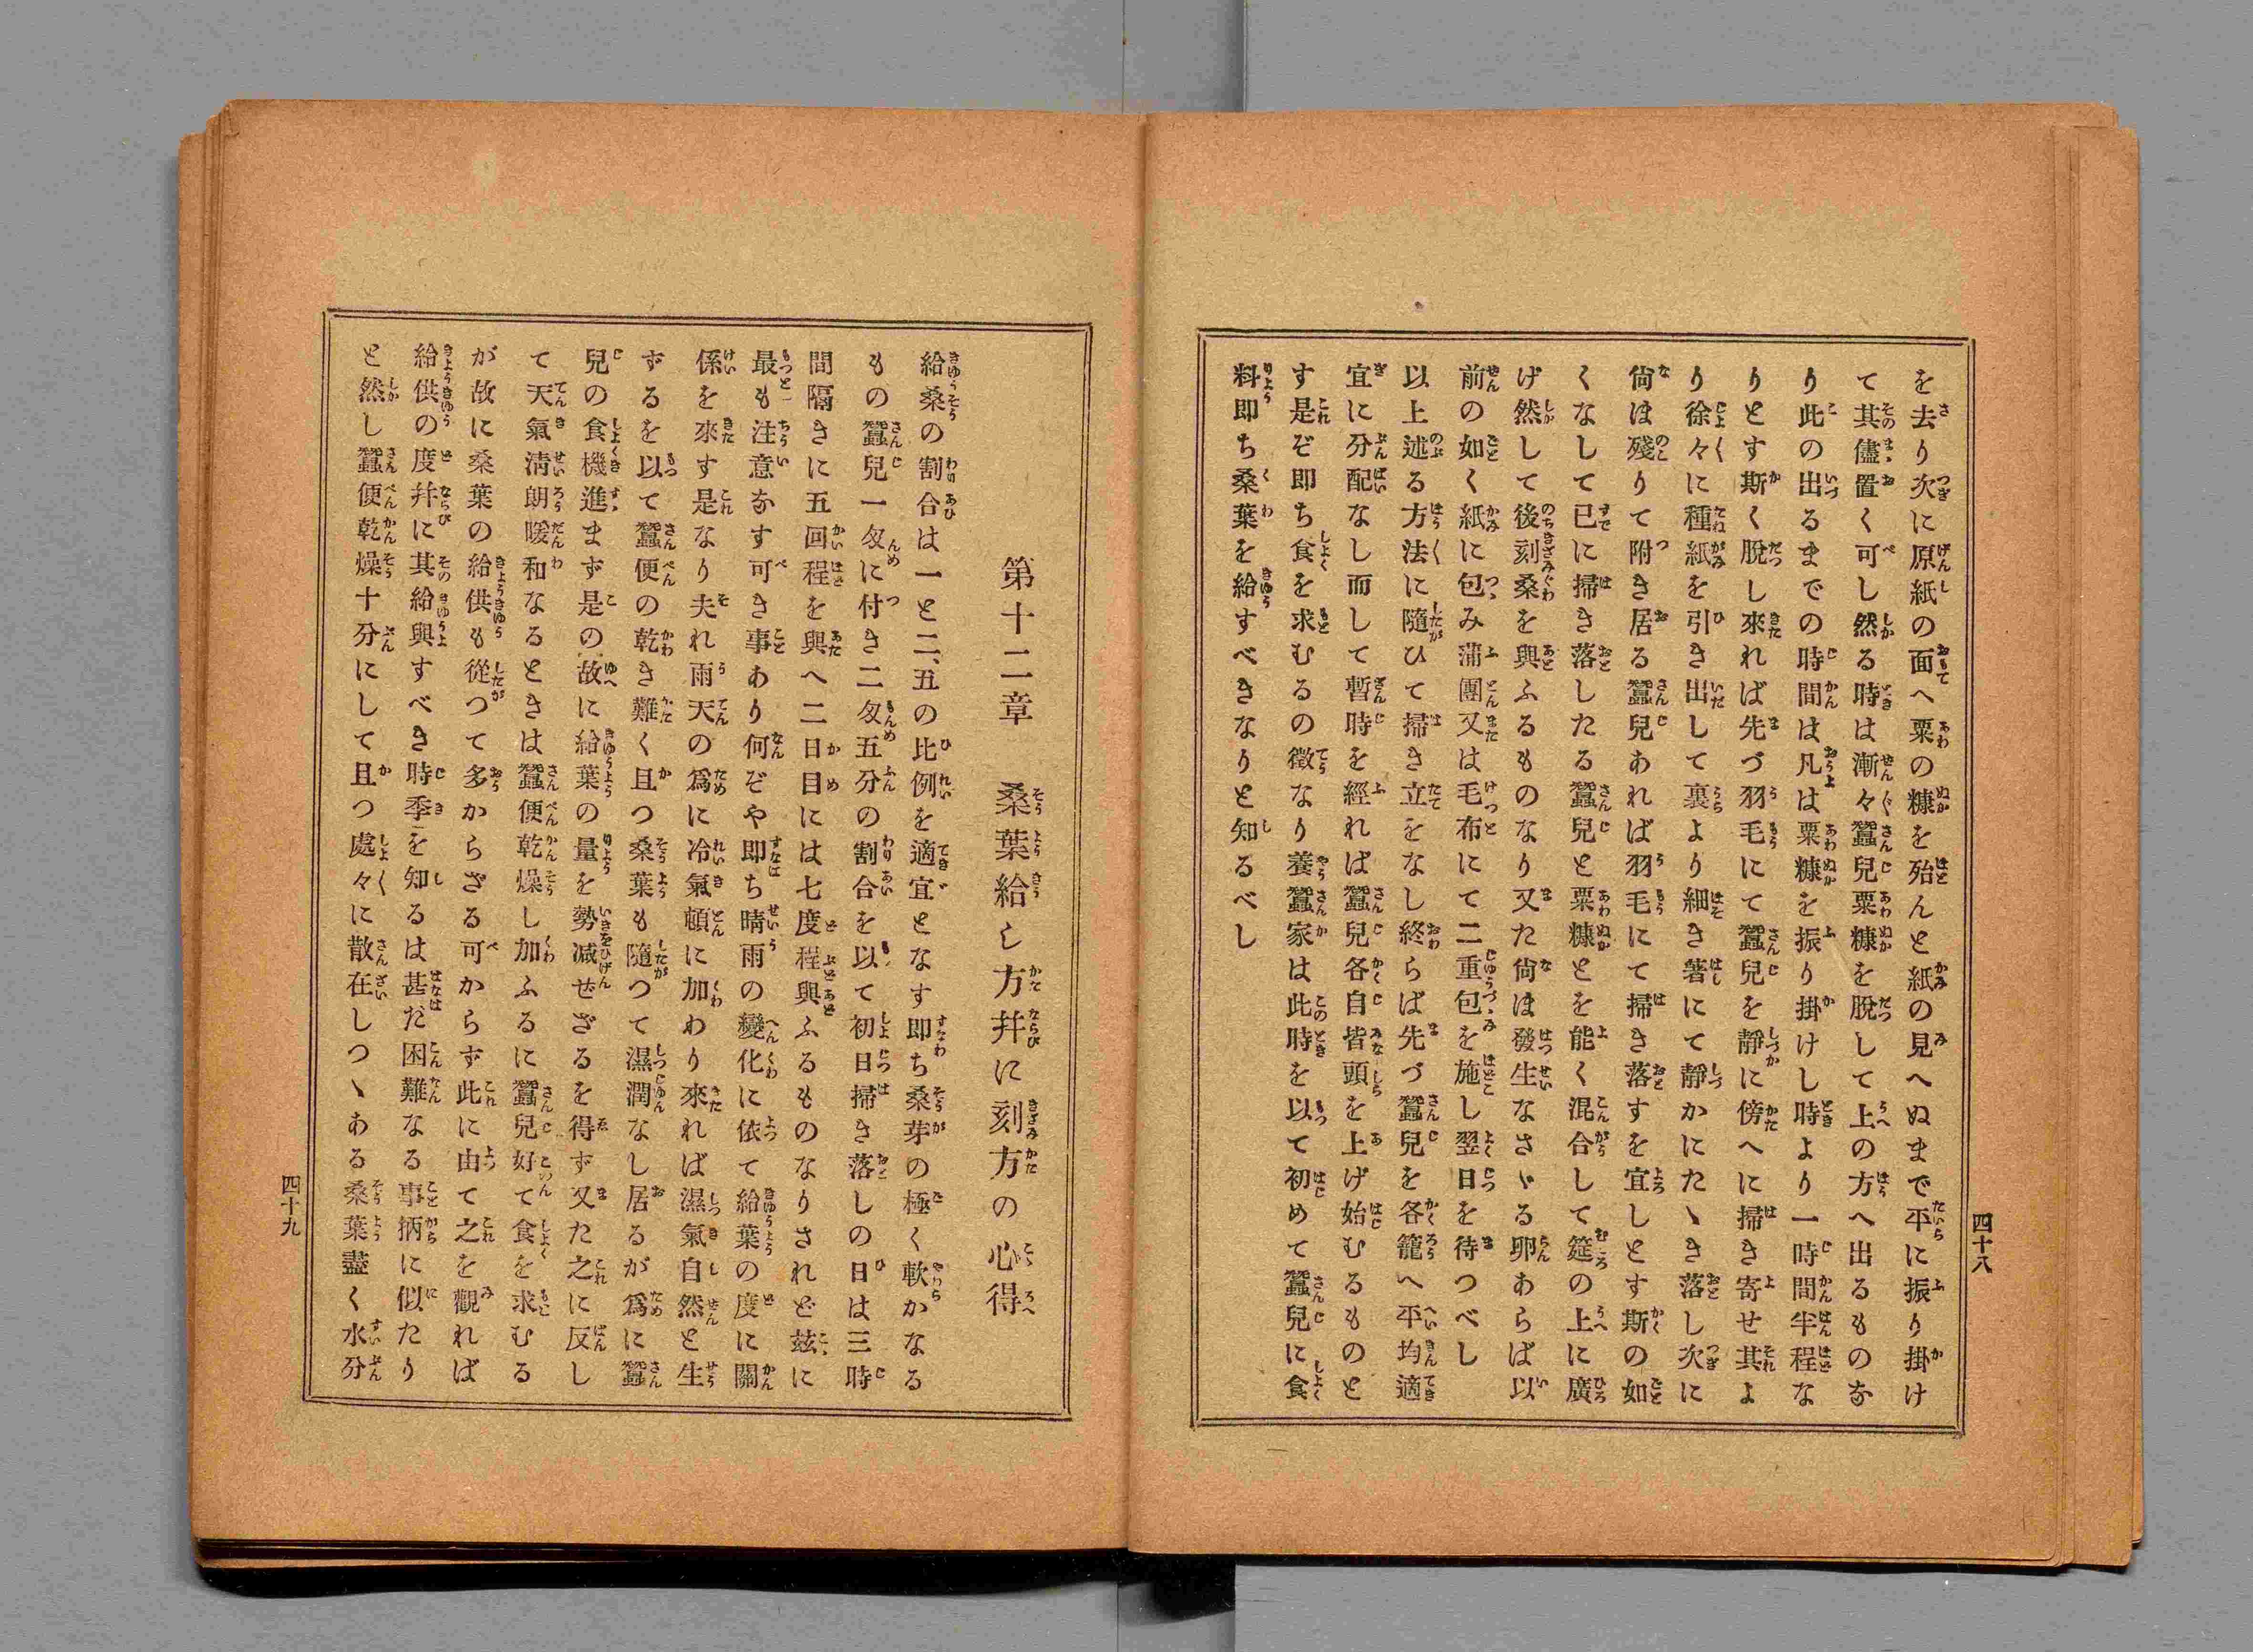 を去り次に原紙の面へ粟の糠を殆んど紙の見へぬまで平に振り掛け
て其儘置く可し然る時は漸々蠶兒粟糠を脱して上の方へ出るものな
り此の出るまでの時間は凡は粟糠を振り掛けし時より一時間半程な
りとす斯く脱し來れば先づ羽毛にて蠶兒を靜に傍へに掃き寄せ其よ
り徐々に種紙を引き出して裏より細き箸にて靜かにたゝき落し次に
尙は殘りて附き居る蠶兒あれば羽毛にて掃き落すを宜しとす斯の如
くなして已に掃き落したる蠶兒と粟糠とを能く混合して筵の上に廣
げ然して後刻桑を與ふるものなり又た尙は發生なさゞる卵あらば以
前の如く紙に包み蒲團又は毛布にて二重包を施し翌日を待つべし
以上述る方法に隨ひて掃き立をなし終らば先づ蠶兒を各籠へ平均適
宜に分配なし而して暫時を經れば蠶兒各自皆頭を上げ始むるものと
す是ぞ即ち食を求むるの徵なり養蠶家は此時を以て初めて蠶兒に食
料即ち桑葉を給すべきなりと知るべし
四十八
第十二章　桑葉給し方幷に刻方の心得
給桑の割合は一と二、五の比例を適宜となす即ち桑芽の極く軟かなる
もの蠶兒一匁に付き二匁五分の割合を以て初日掃き落しの日は三時
間隔きに五回程を與へ二日目には七度程與ふるものなりされど玆に
最も注意なす可き事あり何ぞや即ち晴雨の變化に依て給葉の度に關
係を來す是なり夫れ雨天の爲に冷氣頓に加わり來れば濕氣自然と生
ずるを以て蠶便の乾き難く且つ桑葉も隨つて濕潤なし居るが爲に蠶
兒の食機進まず是の故に給葉の量を勢減ぜざるを得ず又た之に反し
て天氣淸朗暖和なるときは蠶便乾燥し加ふるに蠶兒好て食を求むる
が故に桑葉の給供も從つて多からざる可からず此に由て之を觀れば
給供の度幷に其給與すべき時季を知るは甚だ困難なる事柄に似たり
と然し蠶便乾燥十分にして且つ處々に散在しつゝある桑葉盡く水分
四十九